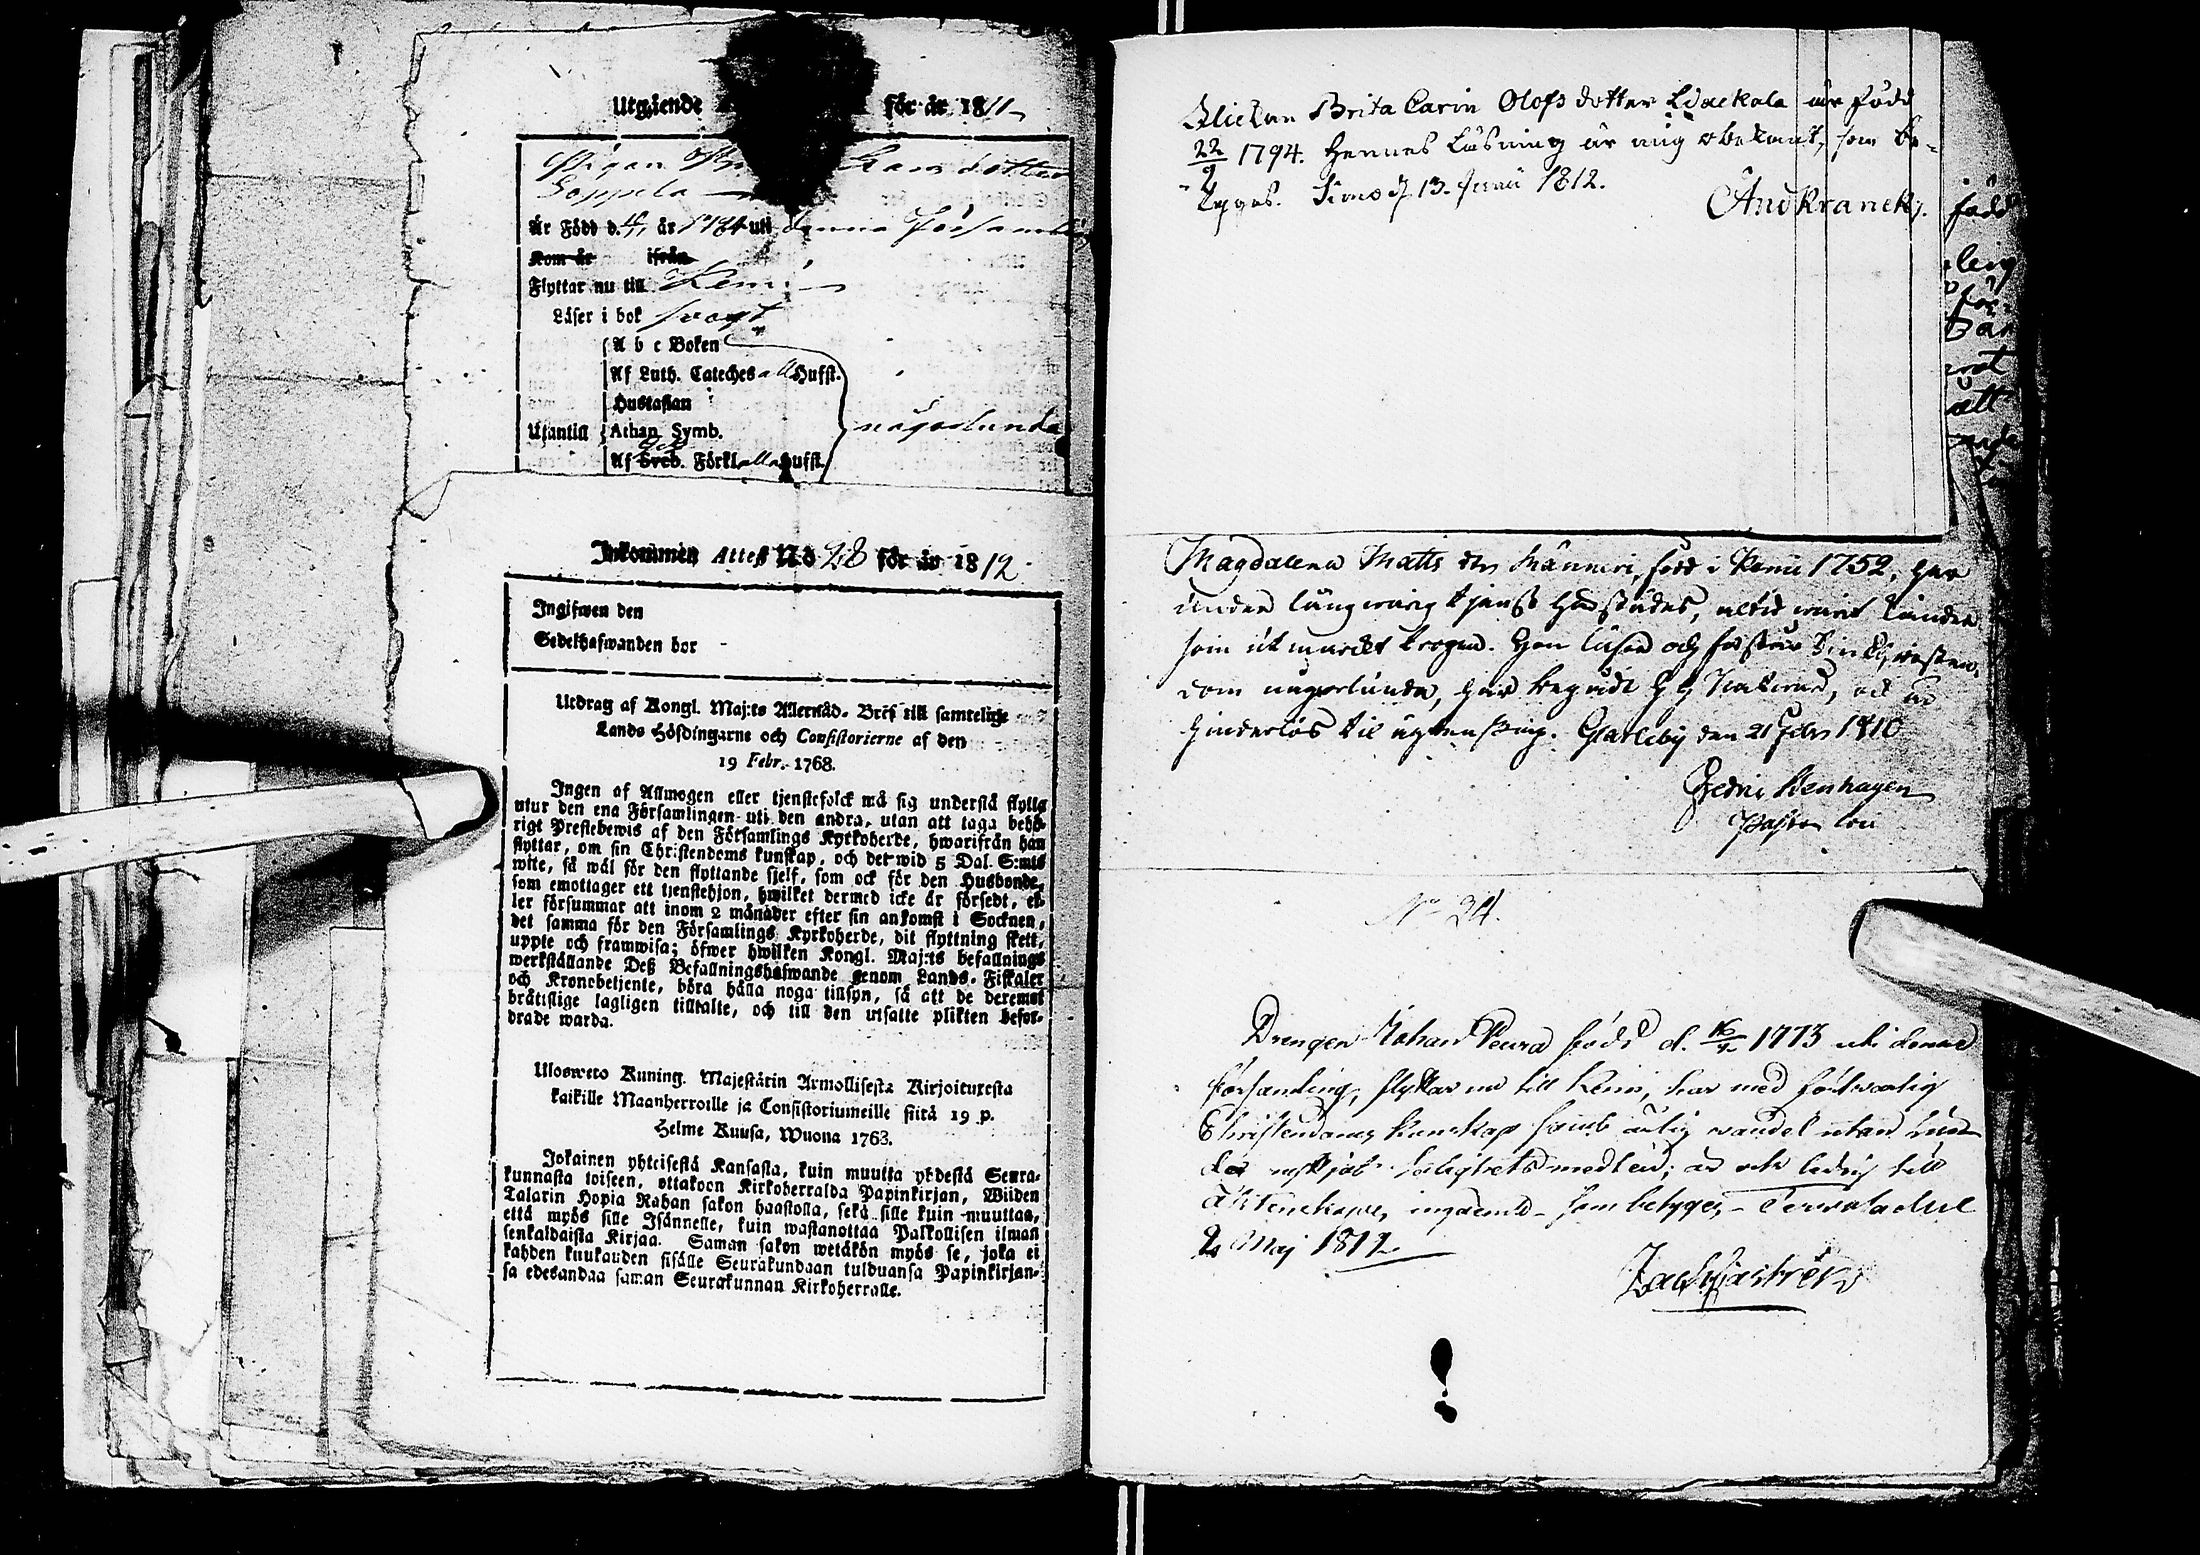 Utgående för år 1811
Pigan Larsdotter
Soppela
Är Född d. 4/1 år 1784 uti denna Församling
Kom år ifrån
Flyttar nu till Kemi
Läser i bok svagt
A b c Boken
Af Luth. Cateches alla Hufst.
Hustaflan
Utantill Athan. Symb. någorlunda
Af Sveb. Förkl. alla Hufst.
Inkommen Attest No 28 för år 1812
Ingifwen den
Sedelhafwanden bor
Utdrag af Kongl. Maj:ts Allernåd. Bref till samtelige
Lands Höfdingarne och Consistorierne af den
19 Febr. 1768.
Ingen af Allmogen eller tjenstefolck må sig understå flytta
utur den ena Församlingen uti den andra, utan att taga behö-
rigt Prestebewis af den Församlings Kyrkoherde, hwarifrån han
flyttar, om sin Christendoms kunskap, och det wid 5 Dal. S:mts
wite, så wäl för den flyttande sjelf, som ock för den Husbonde,
som emottager ett tjenstehjon, hwilket dermed icke är försedt, el-
ler försummar att inom 2 månader efter sin ankomst i Socknen,
det samma för den Församlings Kyrkoherde, dit flyttning skett,
uppte och framwisa; öfwer hwilken Kongl. Maj:ts befallnings
werkställande Deß Befallningshafwande genom Lands-Fiskaler
och Kronobetjente, böra hålla noga tillsyn, så att de deremot
bråttslige lagligen tilltalte, och till den utsatte plikten befor-
drade warda.
Ulosweto Kuning. Majestätin Armollisesta Kirjoituxesta
kaikille Maanherroille ja Consistoriumeille siitä 19 p.
Helme Kuusa, Wuona 1763.
Jokainen yhteisestä Kansasta, kuin muutta yhdestä Seura-
kunnasta toiseen, ottakoon Kirkoherralda Papinkirjan, Wiiden
Talarin Hopia Rahan sakon haastolla, sekä sille kuin muuttaa,
että myös sille Isännelle, kuin wastanottaa Palkollisen ilman
senkaldaista Kirjaa. Saman sakon wetäkön myös se, joka ei
kahden kuukauden sisälle Seurakundaan tulduansa Papinkirjan-
sa edesandaa saman Seurakunnan Kirkoherralle.
Flickan Brita Carin Olofsdotter är född
22/9 1794. Hennes läsning är mig obekant, som be-
tygas. Simo d. 13. Junii 1812.
And Kranck.
Magdalena Matts dr Männicö, född i Kemi 1752, har
under långvarig tjenst härstädes, altid varit känd
som utmärkt trogen. Hon läser och förstår Sin
dom någorlunda, har begådt H H Nattvard, och är
hinderlös til ägtenskap. Glarleby den 21 Febr 1810
Fedric Stenhagen
Pastor
No 34.
Drengen Johan Peura född d. 16/4 1773 uti denne
församling, flyttar nu till Kemi, har med försvarlig
Christendoms kunskap samt ärlig vandel utan hin-
der nyttjat Salighets medlen; är och ledig till
Äktenskaps ingående som betyges, Tervola d.
2 Maj 1812
Zach Castrén